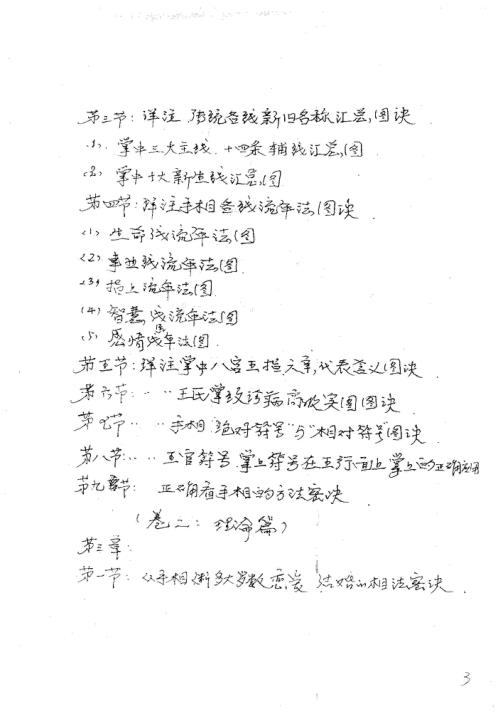 第三节：详注，传统各线新旧名称汇总，图诀
（1）．掌中三大主线．十四条辅线汇总，图
（2）．掌中十大新生线汇总，图
第四节：详注手相各线流年法，图诀
（1）生命线流年法，图
（2）事业线流年法，图
（3）指上流年法，图
（4）智慧线流年法，图
（5）感情线流年法，图
第五节：详注掌中八宫五指六亲，代表含义图诀
第六节：〃〃王氏掌纹诊病高级实图图诀
第七节：〃〃手相"绝好符号"与"相对符号"图诀
第八节：〃〃五官符号．掌上符号在五行面上掌上的正确应用
第九节：正确看手相的方法密诀
（卷二：理论篇）
第三章：
第一节：从手相断多大岁数恋爱 结婚的相法密诀．
3